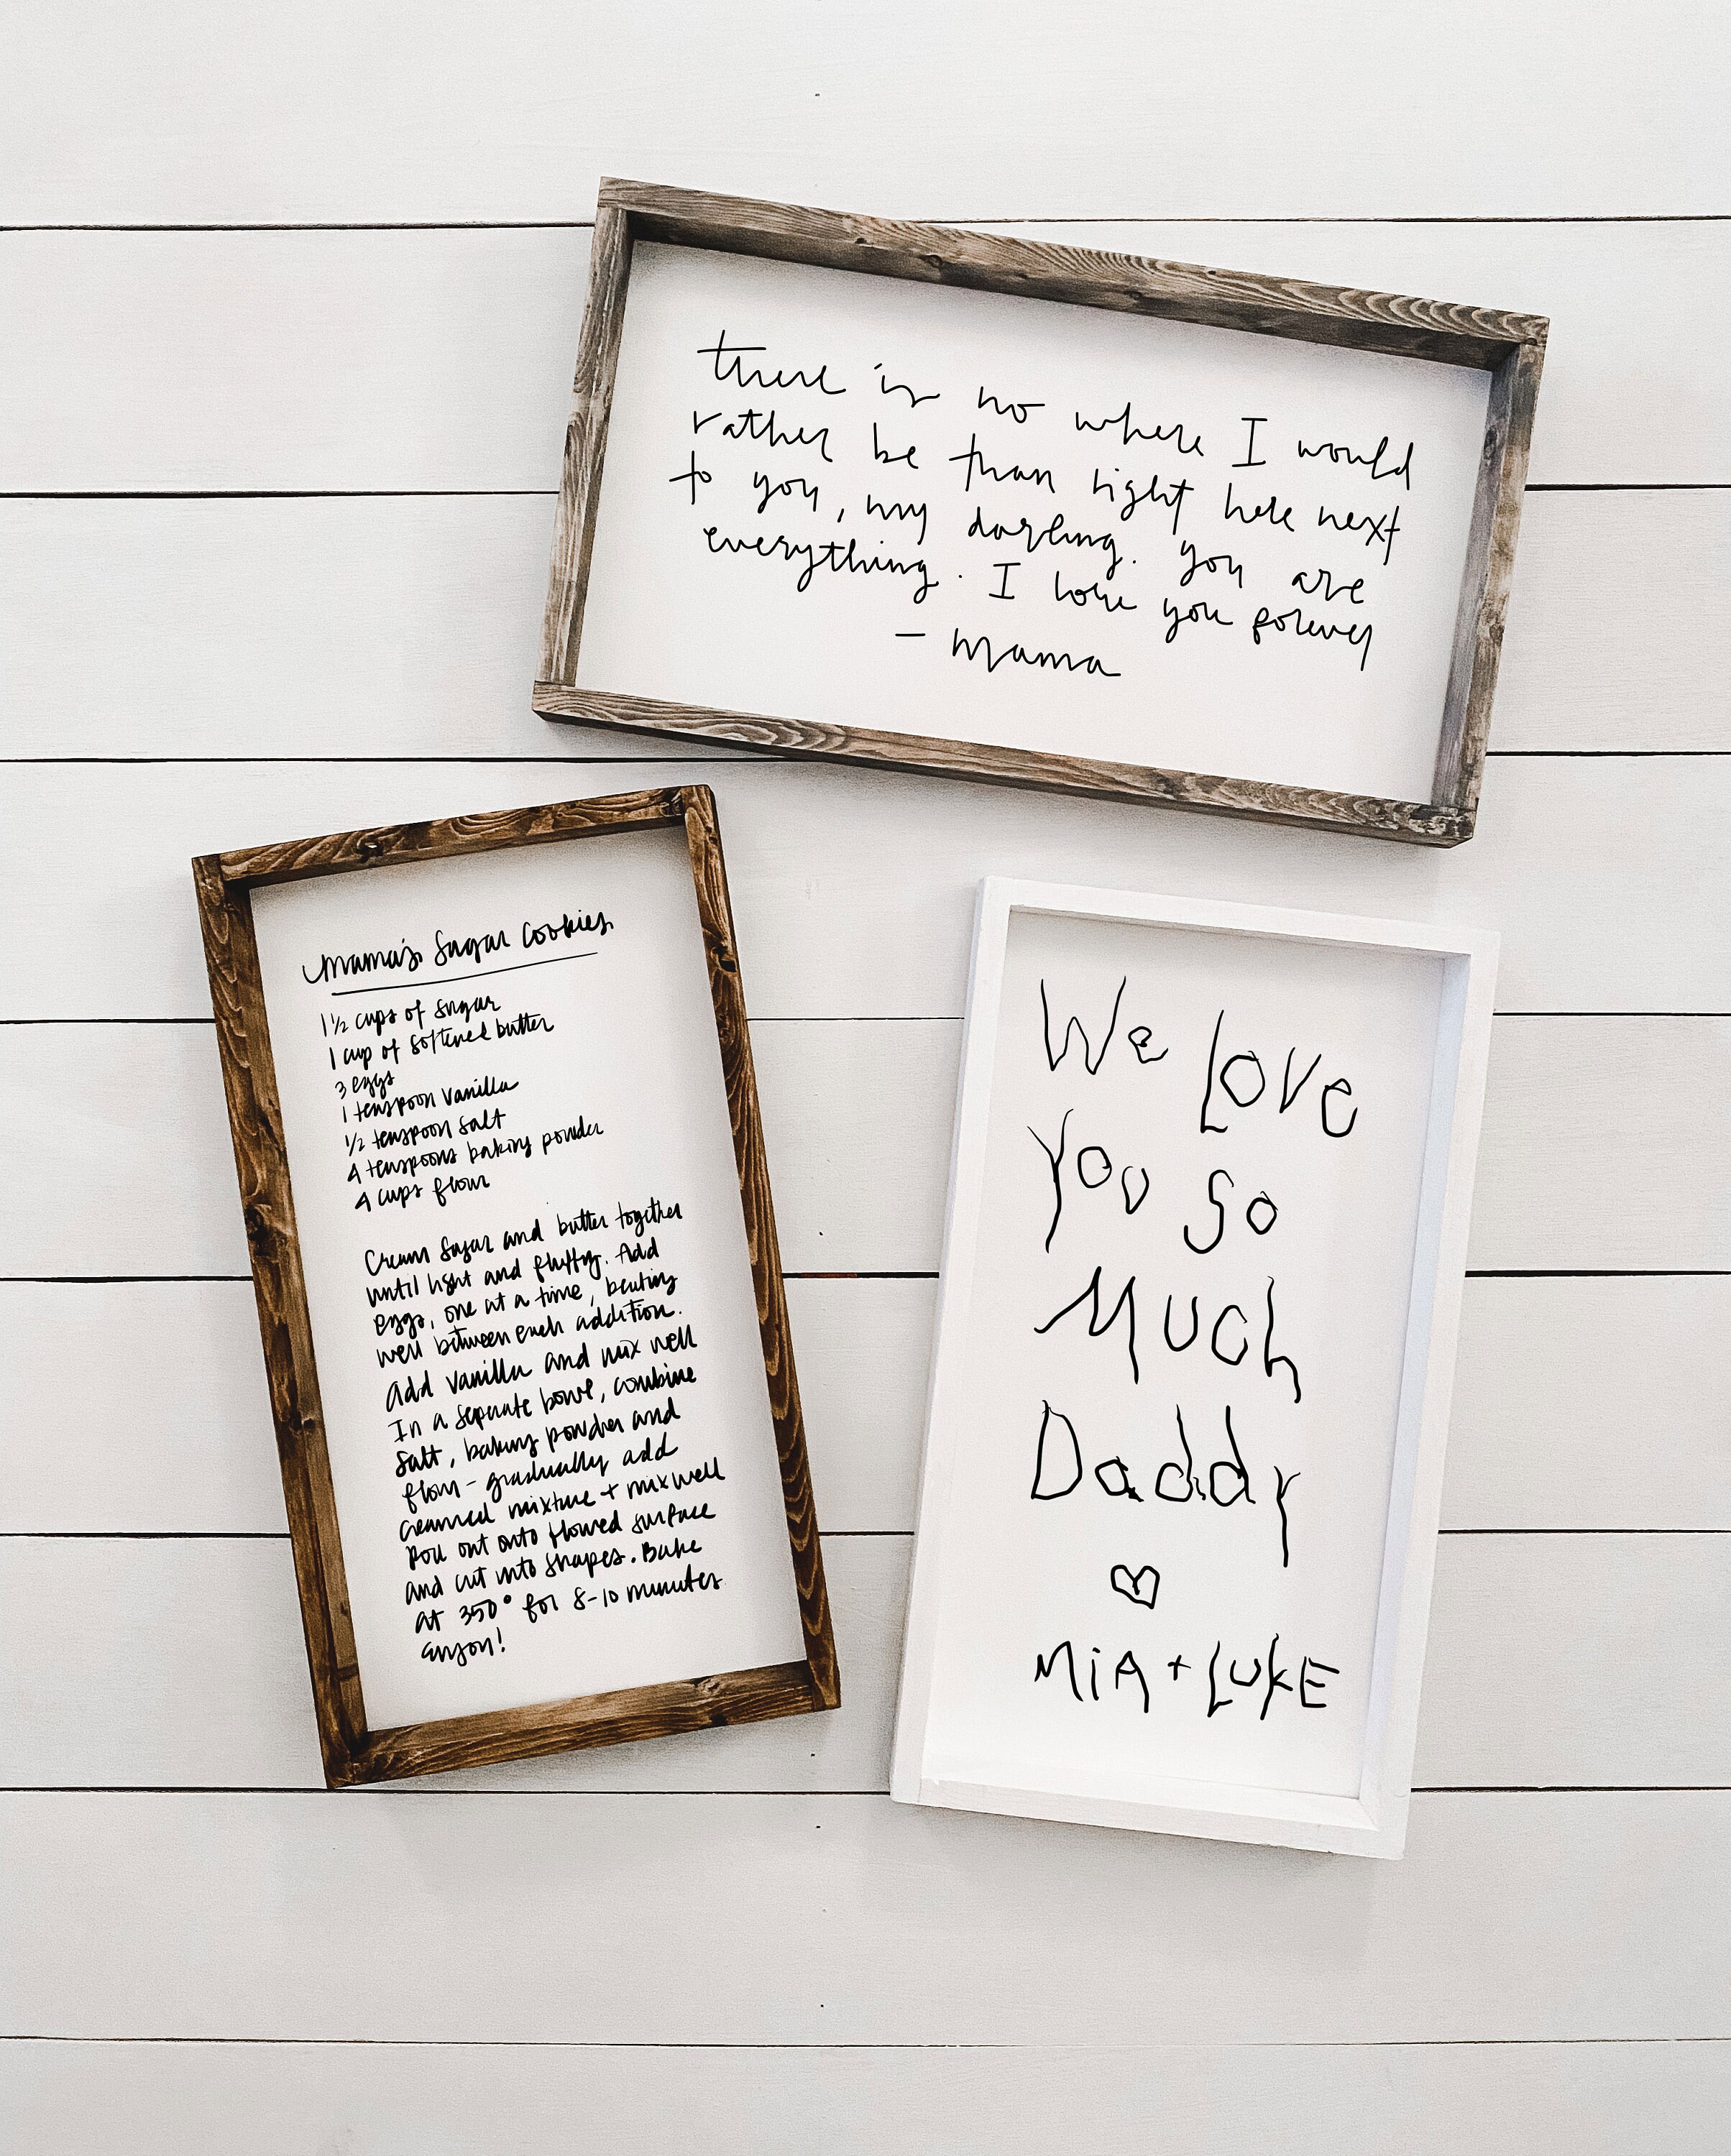 there is no where I would
rather be than right here next
to you, my darling. you are
everything. I love you forever
- mama
Mama's Sugar Cookies
1 1/2 cups of sugar
1 cup of softened butter
3 eggs
1 teaspoon vanilla
1/2 teaspoon salt
4 teaspoons baking powder
4 cups flour
Cream sugar and butter together
until light and fluffy. Add
eggs, one at a time, beating
well between each addition.
Add vanilla and mix well
In a separate bowl, combine
salt, baking powder and
flour - gradually add
creamed mixture + mix well
Roll out onto floured surface
and cut into shapes. Bake
at 350° for 8-10 minutes
enjoy!
We Love
You So
Much
Daddy
MiA + LUKE